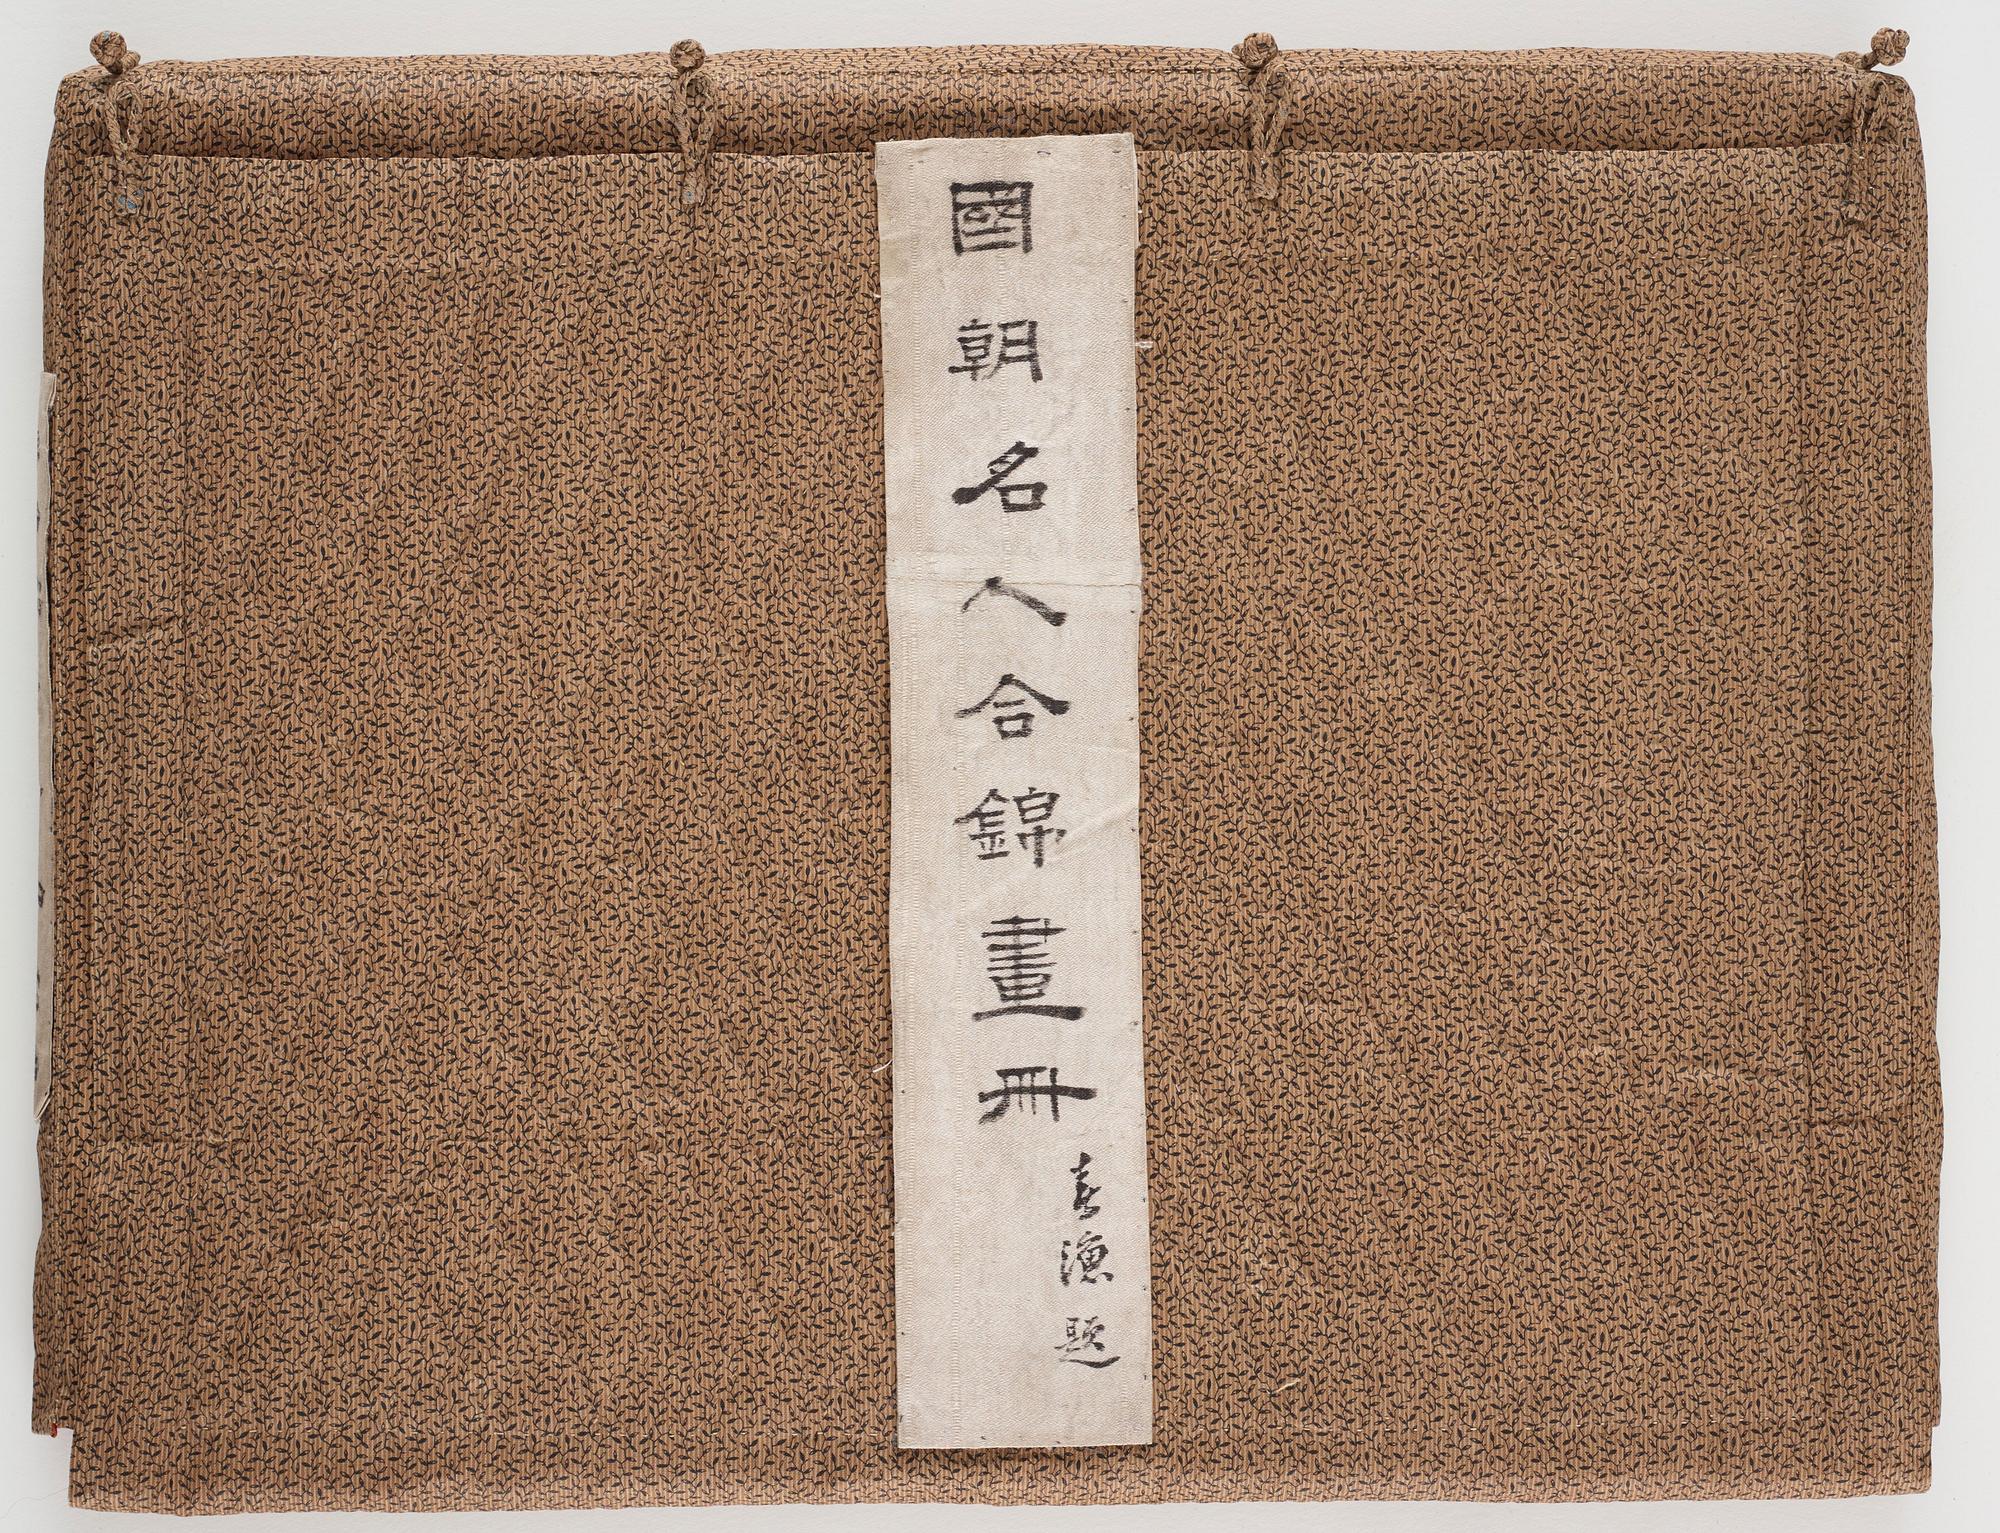 國朝名人合錦畫冊
喜漁題